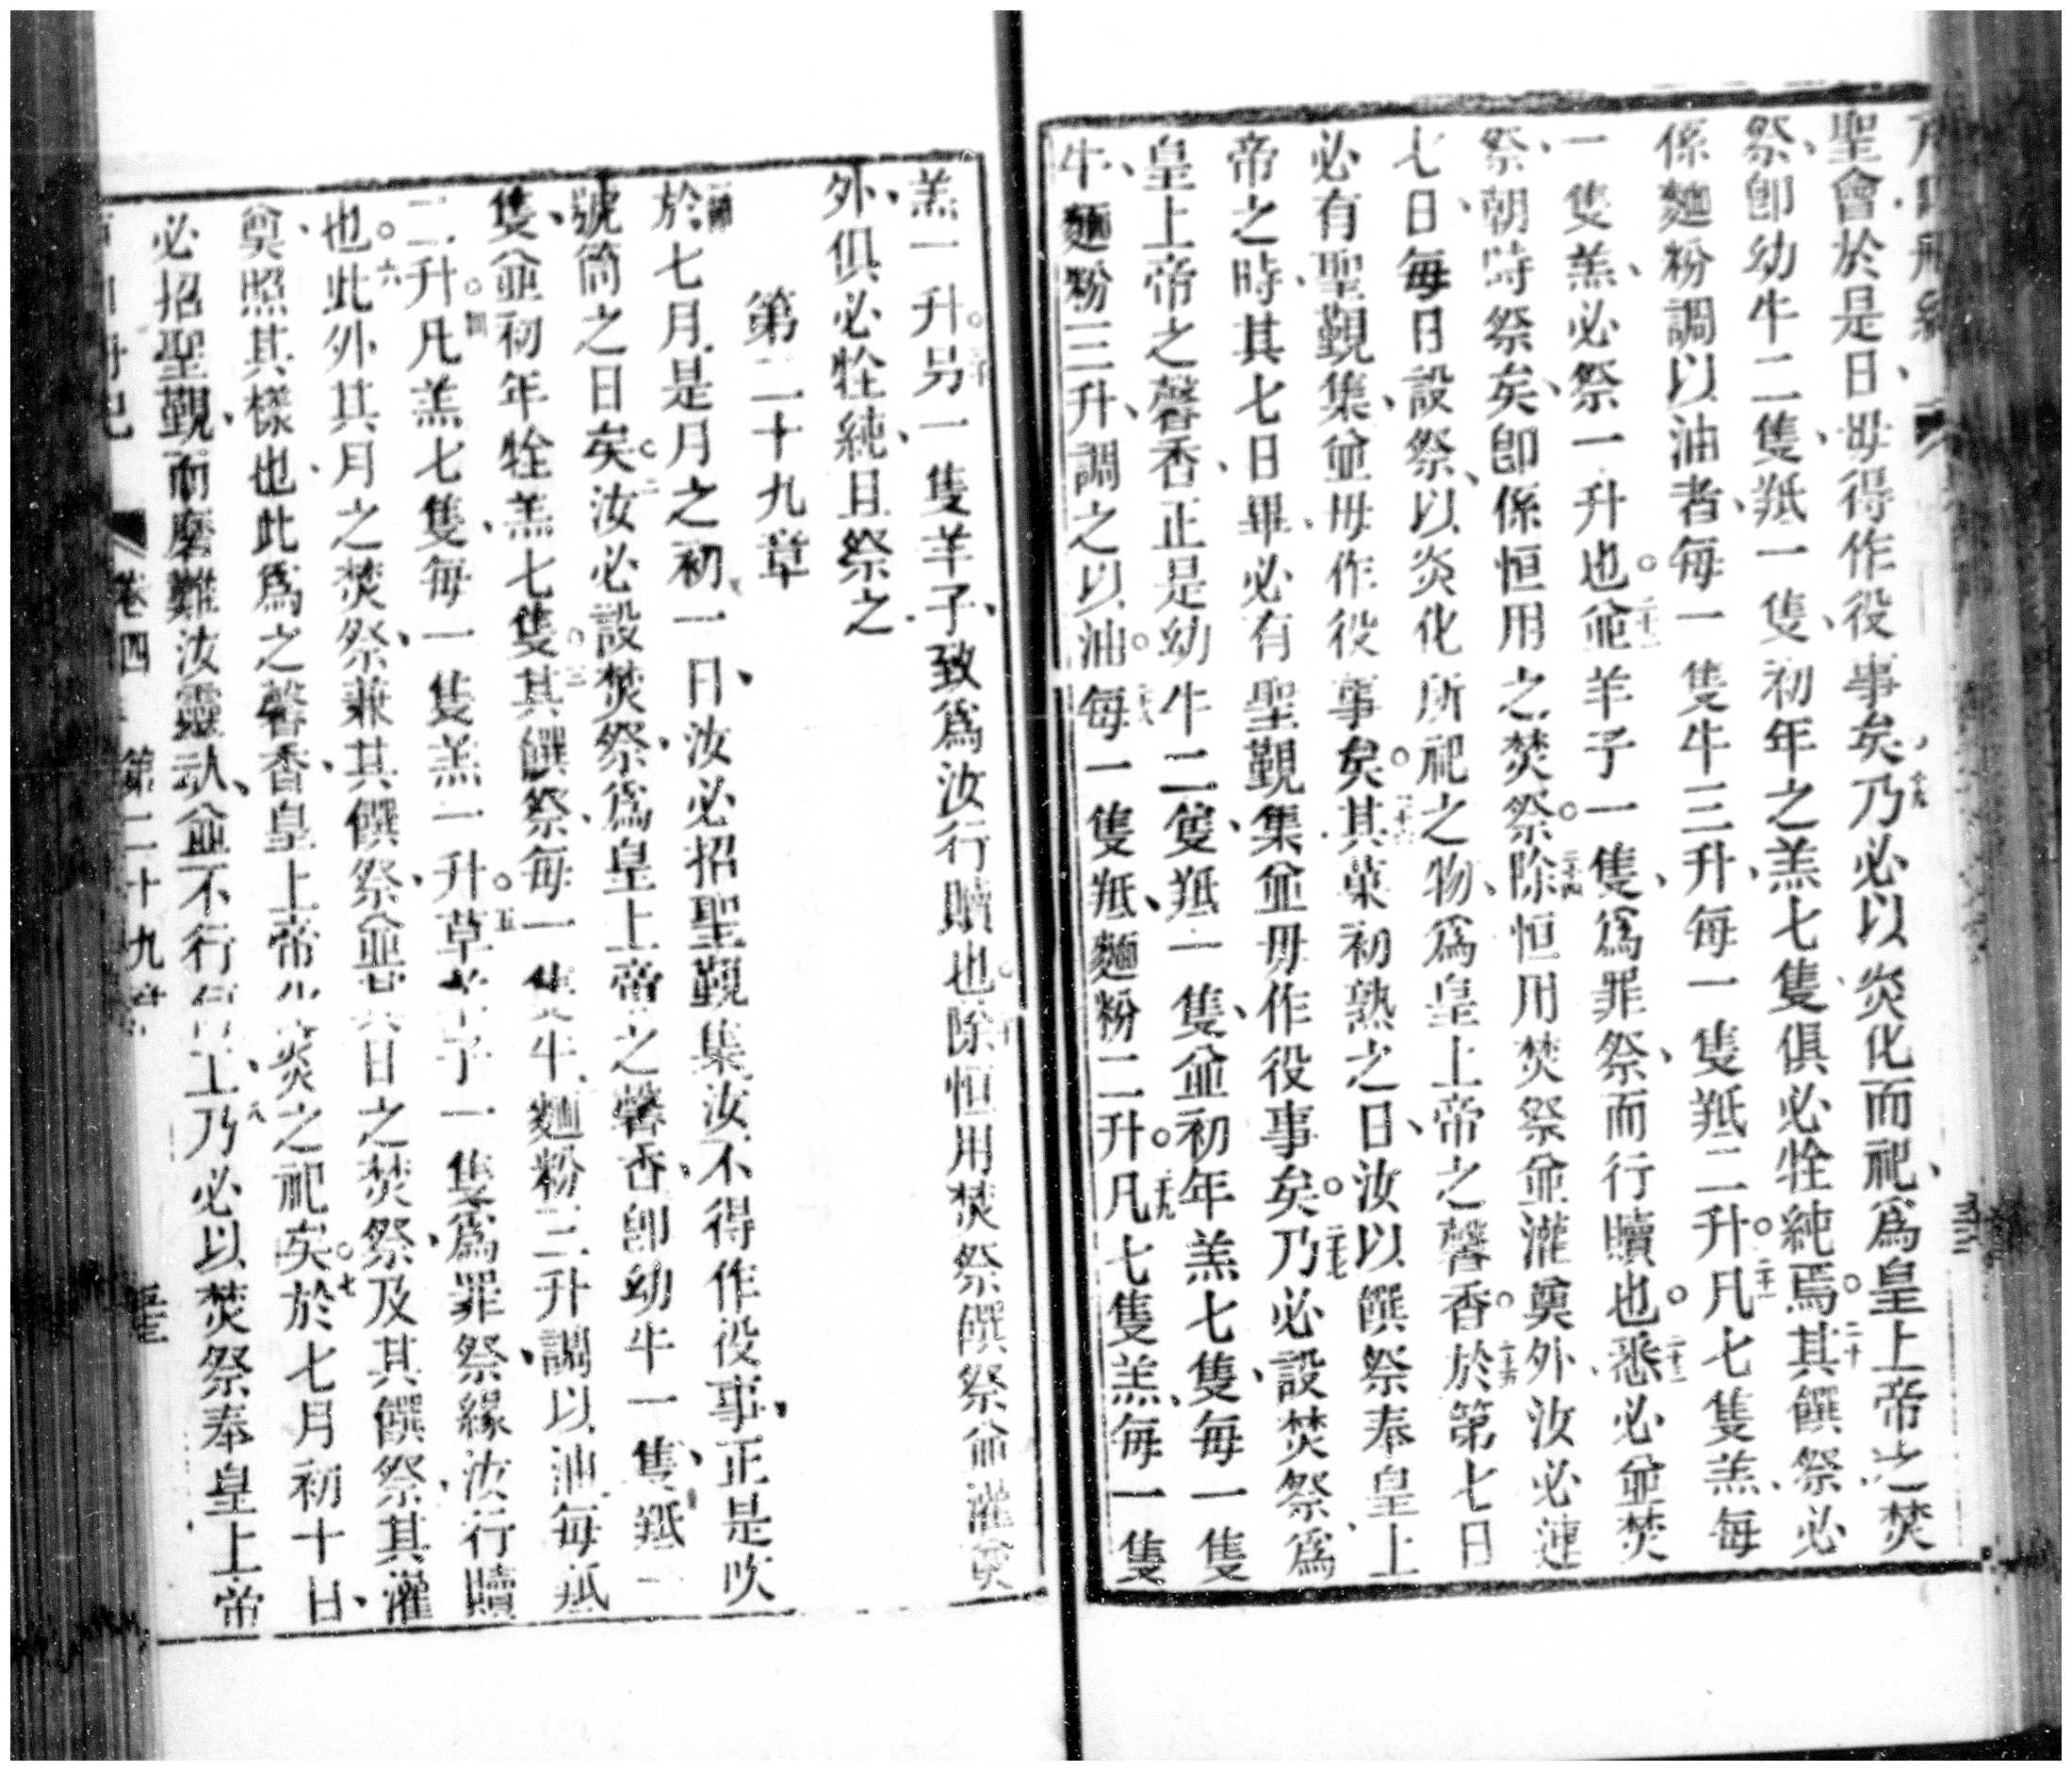 聖會於是日毋得作役事矣十九乃必以炎化而祀、爲皇上帝之焚
祭、卽幼牛二隻、羝一隻、初年之羔七隻、俱必牷純焉。二十其饌祭必
係麵粉調以油者、每一隻牛三升、每一隻羝二升。二十一凡七隻羔、每
一隻羔、必祭一升也。二十二並羊子一隻、爲罪祭、而行贖也。二十三悉必並焚
祭、朝時祭矣、卽係恒用之焚祭。二十四除恒用焚祭並灌奠外、汝必連
七日、每日設祭、以炎化所祀之物、爲皇上帝之馨香。二十五於第七日
必有聖覲集、並毋作役事矣。二十六其菓初熟之日、汝以饌祭奉皇上
帝之時、其七日畢、必有聖覲集並毋作役事矣。二十七乃必設焚祭、爲
皇上帝之馨香、正是幼牛二隻、羝一隻、並初年羔七隻、每一隻
牛、麵粉三升、調之以油。二十八每一隻羝、麵粉二升。二十九凡七隻羔、每一隻
羔一升。三十另一隻羊子、致爲汝行贖也。三十一除恒用焚祭饌祭並灌奠
外、俱必牷純、且祭之
第二十九章
一節於七月、是月之初一日、汝必招聖覲集、汝不得作役事、正是吹
號筒之日矣。二汝必設焚祭、爲皇上帝之馨香、卽幼牛一隻、羝一
隻、並初年牷羔七隻。三其饌祭、每一隻牛、麵粉三升、調以油、每羝
二升。四凡羔七隻、每一隻羔一升。五草羊子一隻、爲罪祭、緣汝行贖
也。六此外其月之焚祭、兼其饌祭、並其日之焚祭、及其饌祭、其灌
奠、照其樣也、此爲之馨香、皇上帝炎之祀矣。七於七月初十日、
必招聖覲、而磨難汝靈、並不行工、八乃必以焚祭奉皇上帝
卷四 第二十九章